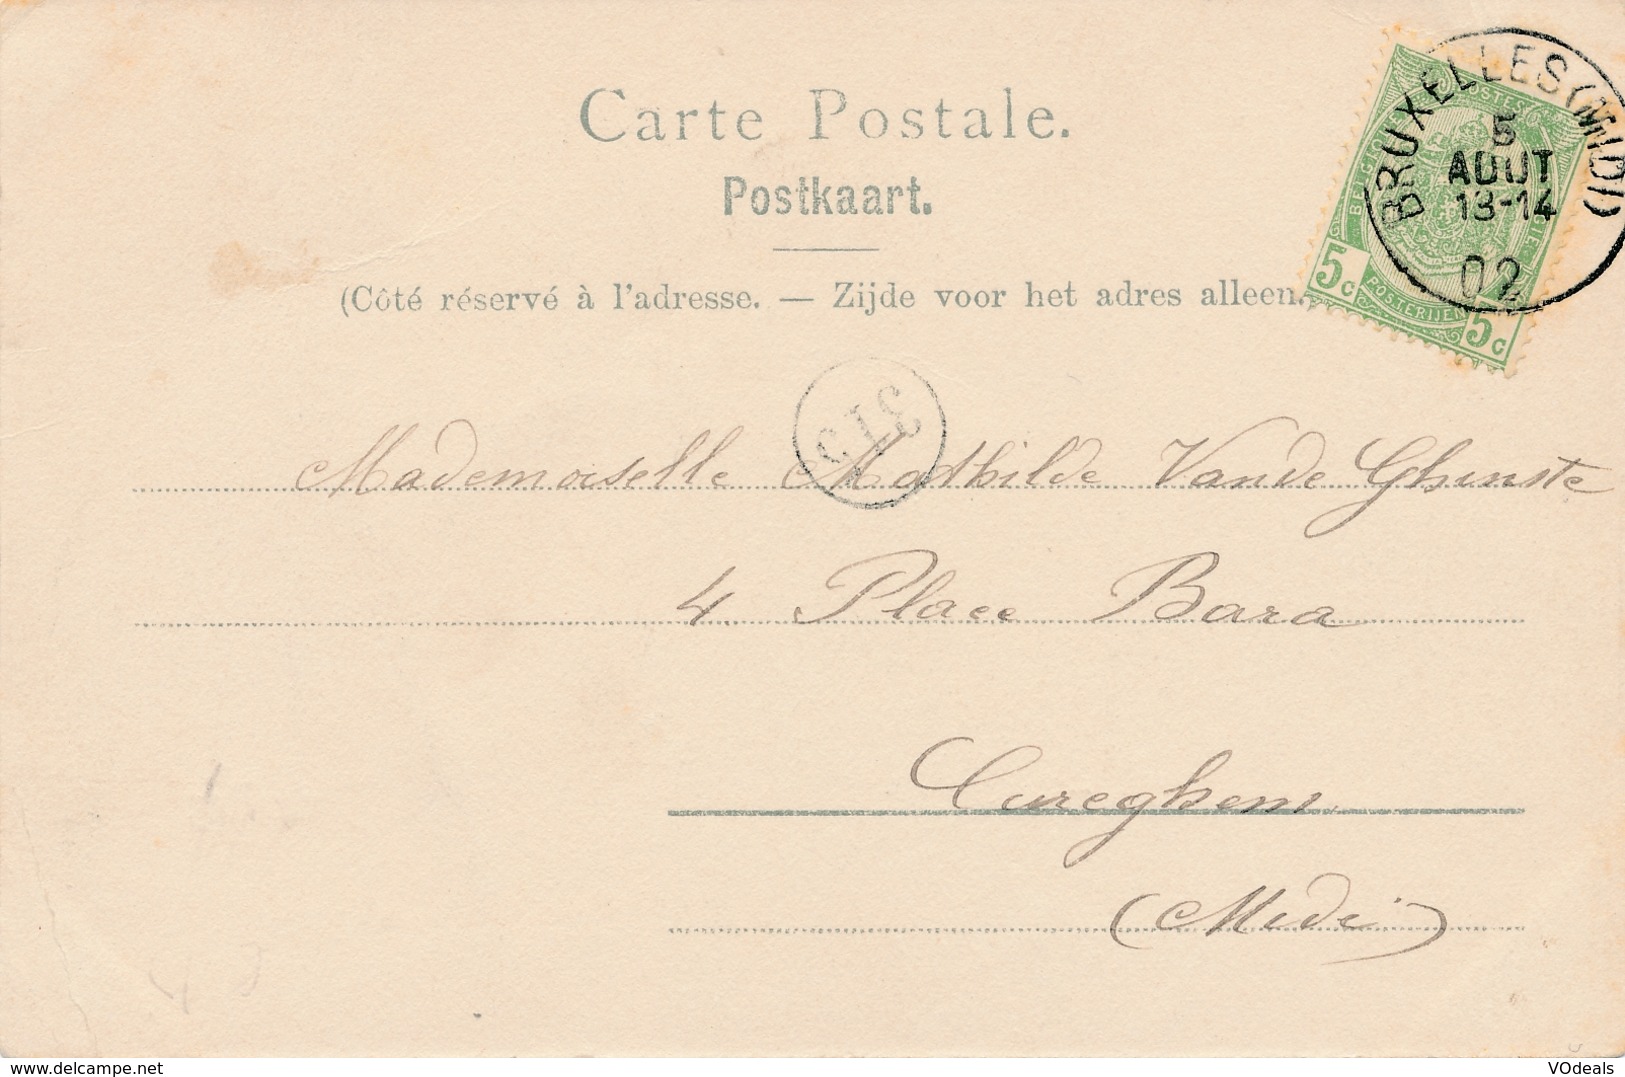 Carte Postale.
Postkaart.
(Côté réservé à l'adresse. — Zijde voor het adres alleen.)
BRUXELLES (MIDI)
5
AOUT
13-14
02
BELGIQUE POSTES BELGIË
5c POSTERIJEN 5c
Mademoiselle Mathilde Vande Ghinste
4 Place Bara
Cureghem
(Midi)
www.delcampe.net
VOdeals